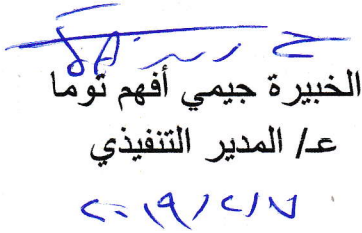 الخبيرة جيمي أفهم توما
عـ/ المدير التنفيذي
٢٠١٩/٢/٧